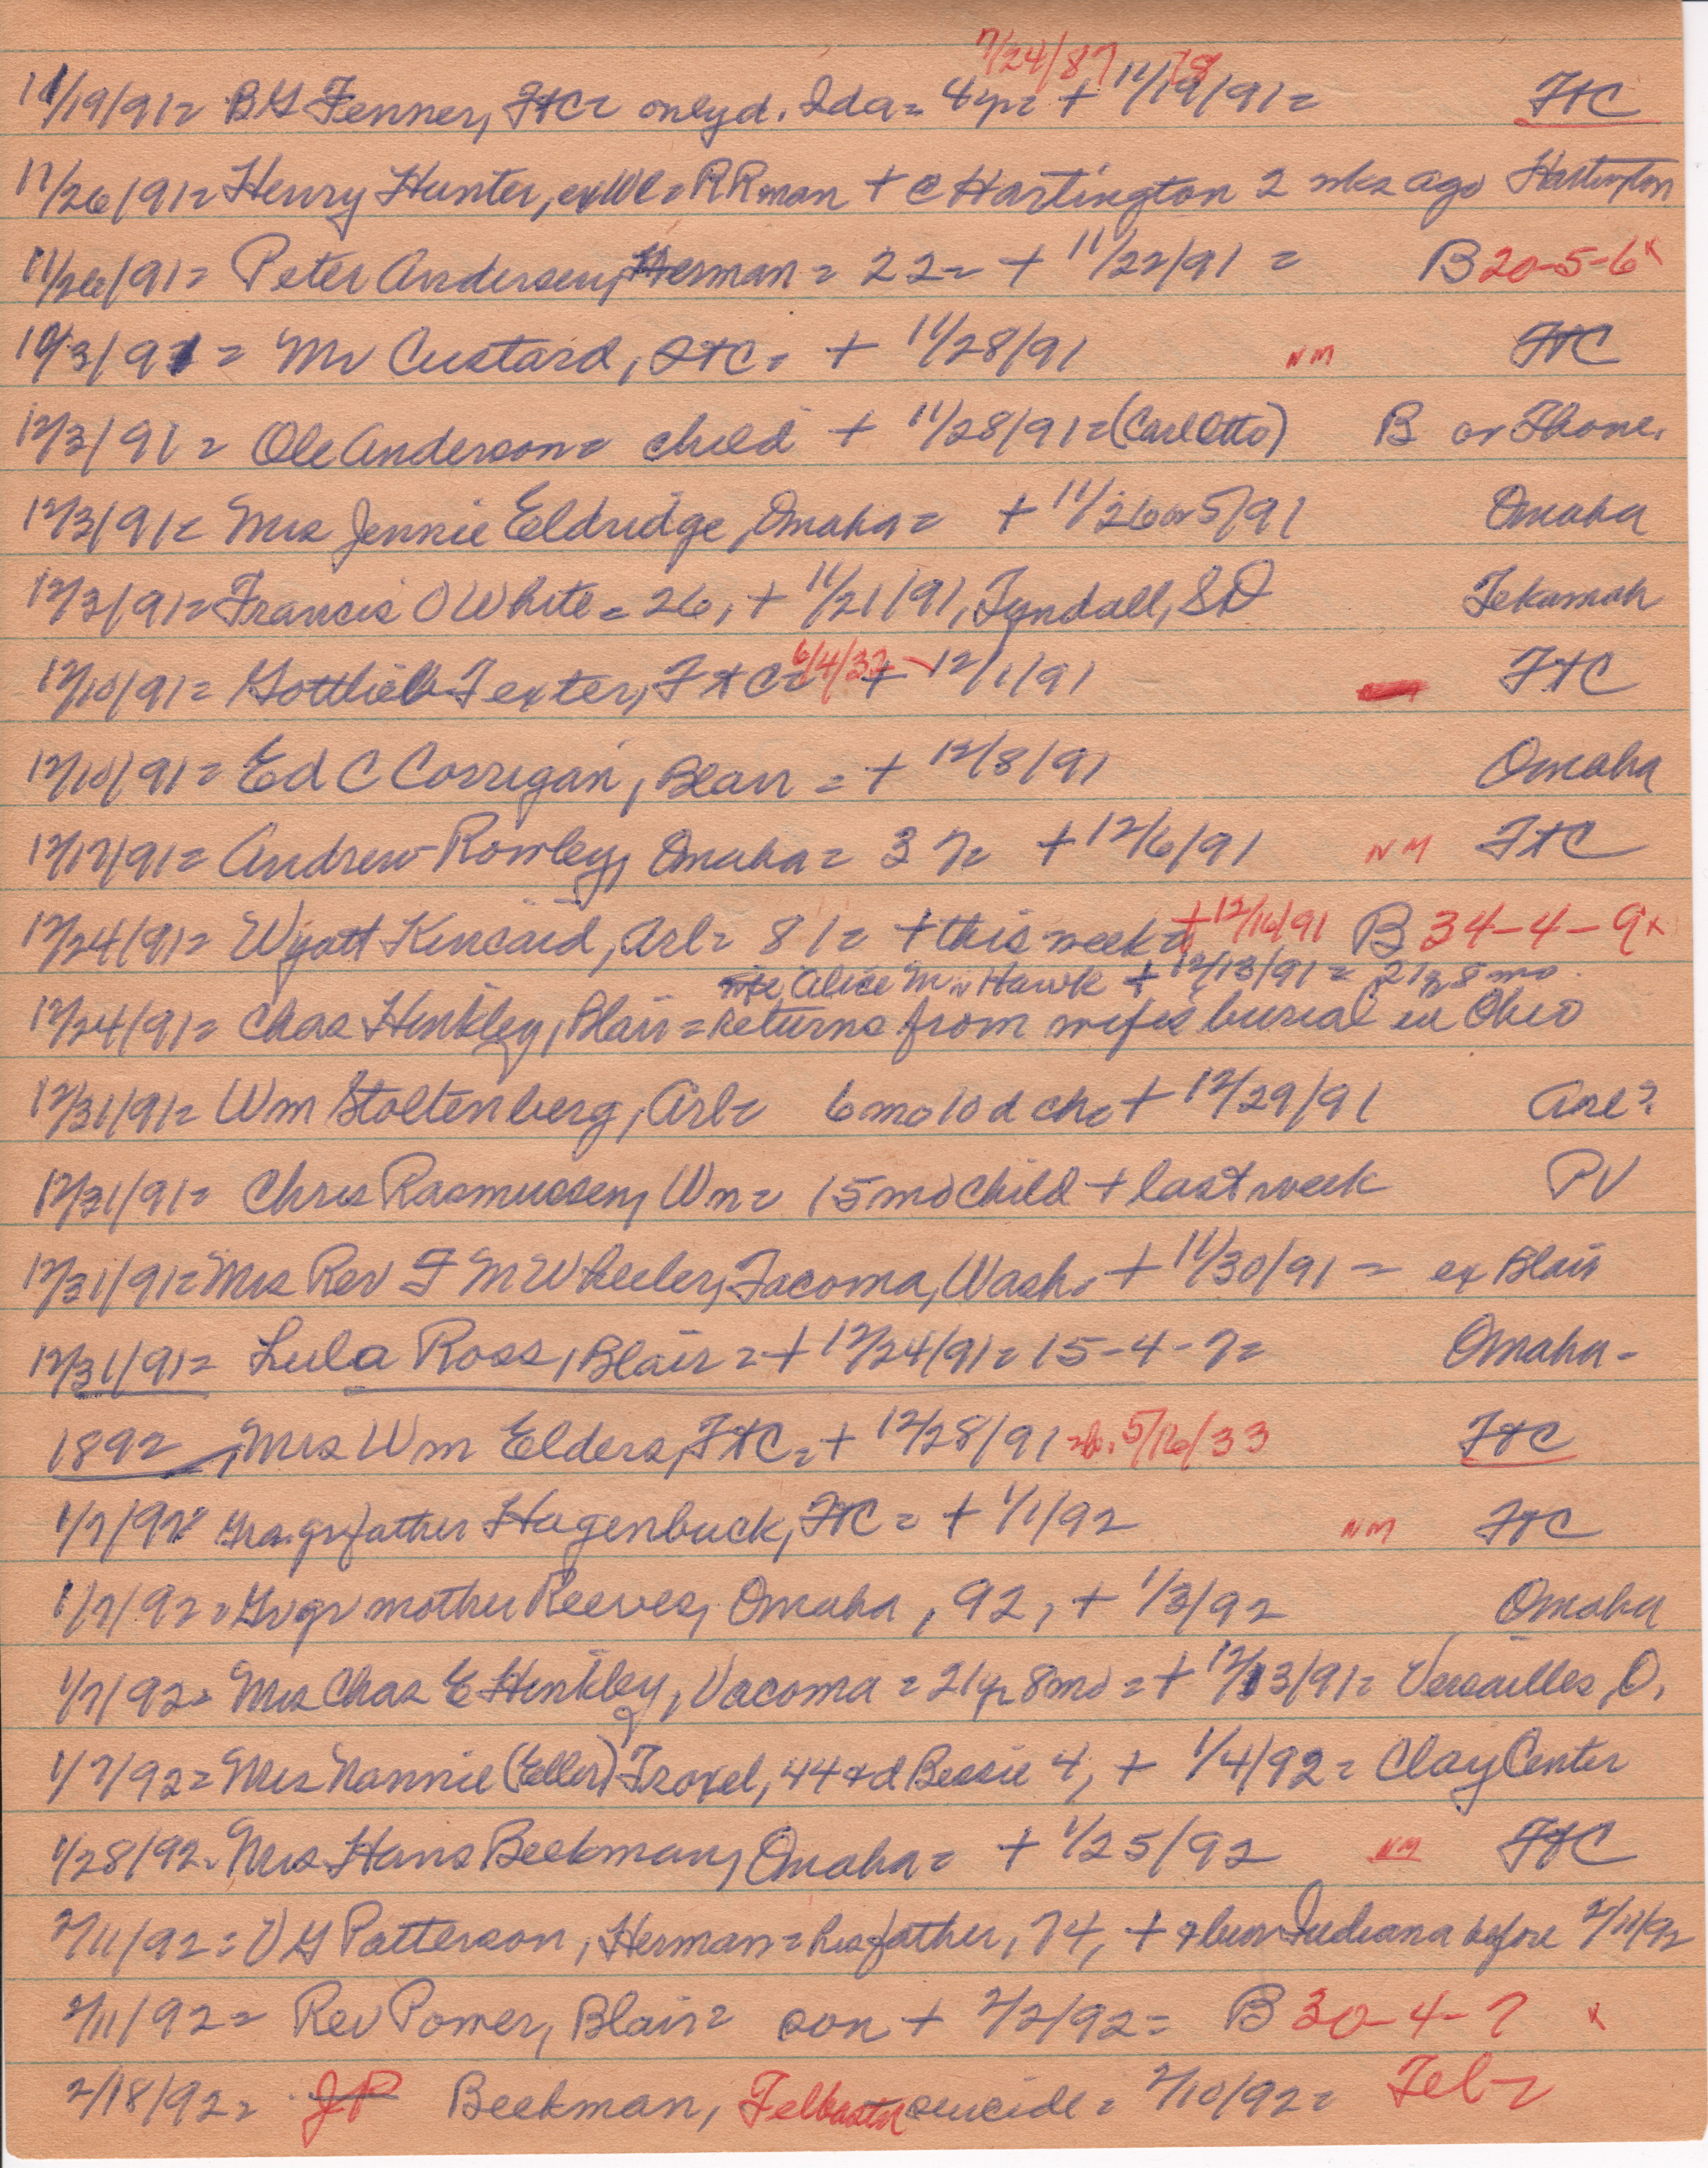 7/24/87 78
11/19/91= BG Fenner, FtC= only d. Ida= 4yr= + 11/19/91= FtC
11/26/91= Henry Hunter, exWC= RRman + @ Hartington 2 wks ago Hartington
11/26/91= Peter Andersen, Herman = 22= + 11/22/91 = B 20-5-6x
12/3/91= Mr Custard, FtC= + 11/28/91 NM FtC
12/3/91= Ole Anderson= child + 11/28/91=(Carl Otto) B or Thone.
12/3/91= Mrs Jennie Eldridge, Omaha= + 11/26 or 5/91 Omaha
12/3/91= Francis O White= 26, + 11/21/91, Tyndall, SD Tekamah
12/10/91= Gottlieb Texter, FtC= 6/4/32 - + 12/1/91 FtC
12/10/91= Ed C Corrigan, Blair = + 12/8/91 Omaha
12/17/91= Andrew Rowley, Omaha= 37= + 12/6/91 NM FtC
12/24/91= Wyatt Kincaid, Arl= 81= + this week= +12/16/91 B 34-4-9x
Alice M Hawk + 12/13/91= 21y 8mo.
12/24/91= Chas Hinkley, Blair= returns from wifes burial in Ohio
12/31/91= Wm Stoltenberg, Arl= 6mo10d ch= + 12/29/91 Arl?
12/31/91= Chris Rasmussen, Wn= 15mo child + last week PV
12/31/91= Mrs Rev F M Wheeler, Tacoma, Wash. + 11/30/91 = ex Blair
12/31/91= Lula Ross, Blair = + 12/24/91= 15-4-7= Omaha-
1892, Mrs Wm Elders, FtC= + 12/28/91 =b. 5/16/33 FtC
1/7/92= Gra.grfather Hagenbuck, FtC = + 1/1/92 NM FtC
1/7/92= Gr gr mother Reeves, Omaha, 92, + 1/3/92 Omaha
1/7/92= Mrs Chas E Hinkley, Vacoma = 21yr 8mo = + 12/13/91= Versailles, O.
1/7/92= Mrs Nannie (Eller) Troxel, 44 + d Bessie 4, + 1/4/92= Clay Center
1/28/92= Mrs Hans Beekman, Omaha= + 1/25/92 NM FtC
2/11/92= V G Patterson, Herman= his father, 74, + + bur Indiana before 2/11/92
2/11/92= Rev Power, Blair= son + 2/2/92= B 30-4-7 x
2/18/92= JP Beekman, suicide= 2/10/92=